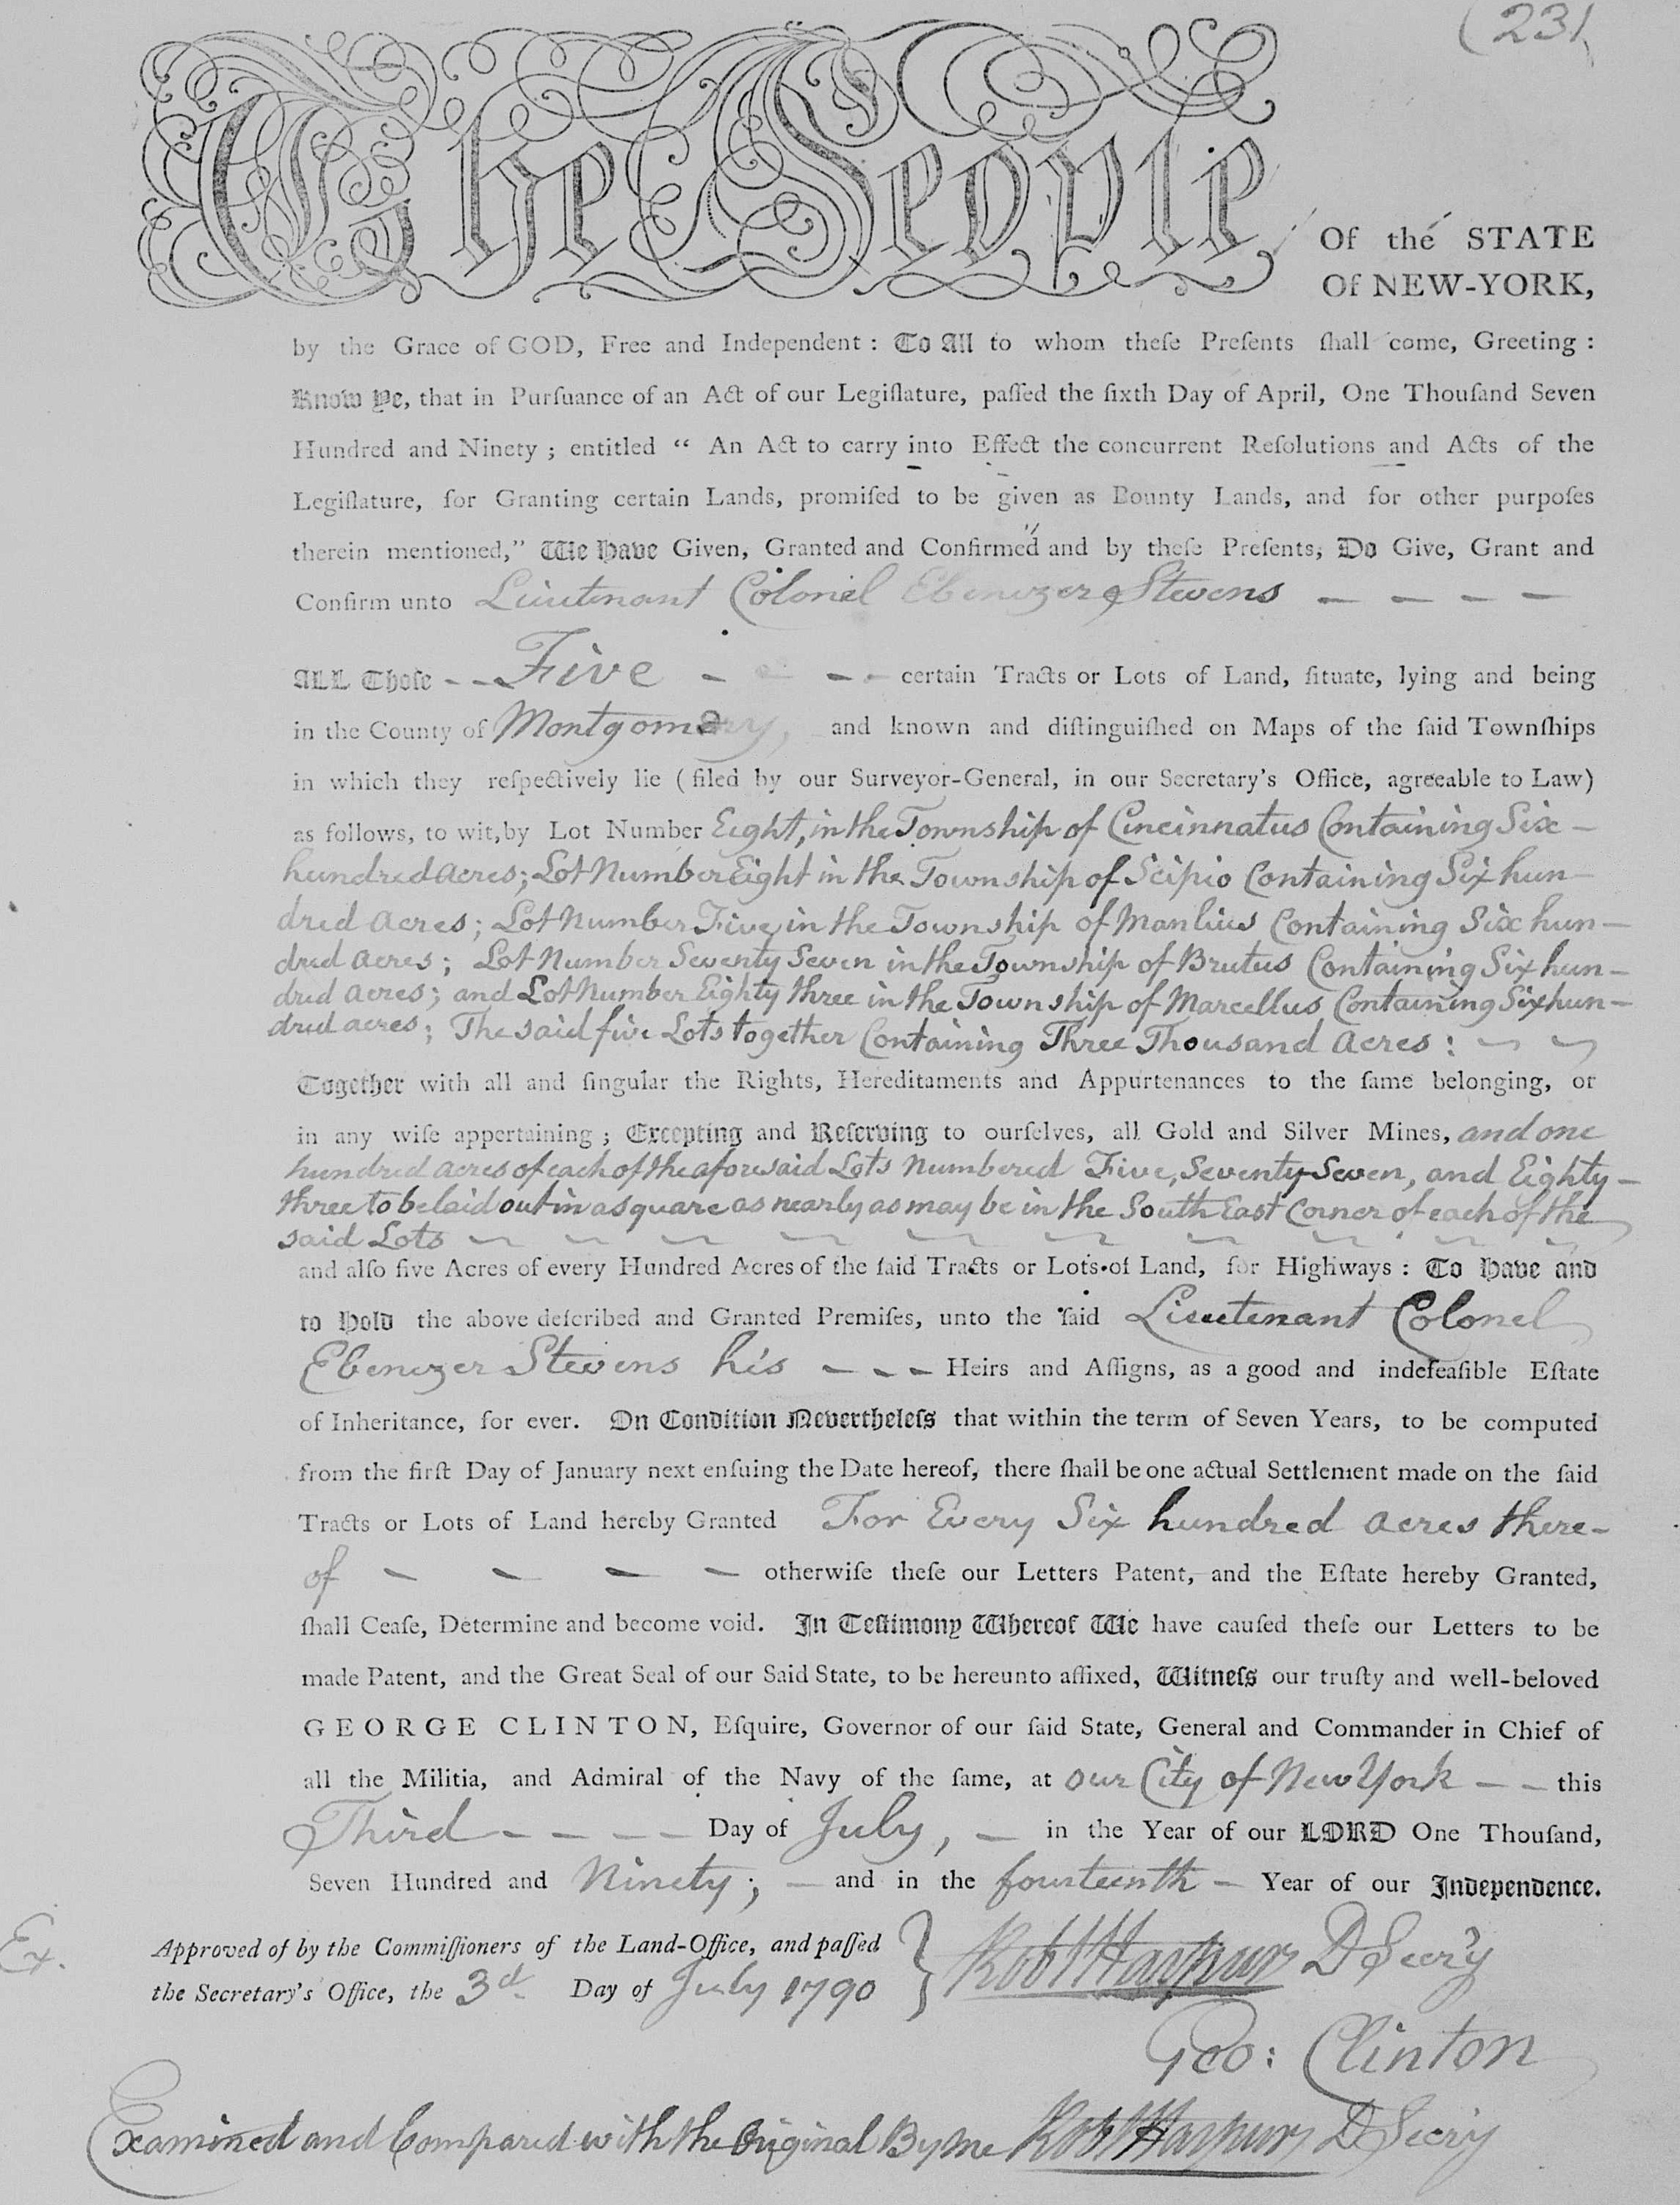 (231
The People
Of the STATE
Of NEW-YORK,
by the Grace of GOD, Free and Independent : To All to whom theſe Preſents ſhall come, Greeting :
Know Ye, that in Purſuance of an Act of our Legiſlature, paſſed the ſixth Day of April, One Thouſand Seven
Hundred and Ninety ; entitled “ An Act to carry into Effect the concurrent Reſolutions and Acts of the
Legiſlature, for Granting certain Lands, promiſed to be given as Bounty Lands, and for other purpoſes
therein mentioned,” We Have Given, Granted and Confirmed and by theſe Preſents, Do Give, Grant and
Confirm unto Lieutenant Colonel Ebenezer Stevens — — — —
ALL Thoſe - - Five - - - - certain Tracts or Lots of Land, ſituate, lying and being
in the County of Montgomery, and known and diſtinguiſhed on Maps of the ſaid Townſhips
in which they reſpectively lie (filed by our Surveyor-General, in our Secretary’s Office, agreeable to Law)
as follows, to wit, by Lot Number Eight, in the Township of Cincinnatus Containing Six —
hundred acres; Lot Number Eight in the Township of Scipio Containing Six hun—
dred acres; Lot Number Five, in the Township of Manlius Containing Six hun—
dred acres; Lot Number Seventy Seven in the Township of Brutus Containing Six hun—
dred acres; and Lot Number Eighty three in the Township of Marcellus Containing Six hun—
dred acres; The said five Lots together Containing Three Thousand acres: ~ ~
Together with all and ſingular the Rights, Hereditaments and Appurtenances to the ſame belonging, or
in any wiſe appertaining ; Excepting and Reſerving to ourſelves, all Gold and Silver Mines, and one
hundred acres of each of the aforesaid Lots Numbered Five, Seventy Seven, and Eighty—
three to be laid out in a square as nearly as may be in the South East Corner of each of the
said Lots ~ ~ ~ ~ ~ ~ ~ ~ ~ ~
and alſo five Acres of every Hundred Acres of the ſaid Tracts or Lots of Land, for Highways : To Have and
to Hold the above deſcribed and Granted Premiſes, unto the ſaid Lieutenant Colonel
Ebenezer Stevens his - - - Heirs and Aſſigns, as a good and indefeaſible Eſtate
of Inheritance, for ever. On Condition Nevertheleſs that within the term of Seven Years, to be computed
from the firſt Day of January next enſuing the Date hereof, there ſhall be one actual Settlement made on the ſaid
Tracts or Lots of Land hereby Granted For Every Six hundred acres there-
of — — — — otherwiſe theſe our Letters Patent, and the Eſtate hereby Granted,
ſhall Ceaſe, Determine and become void. In Teſtimony Whereof We have cauſed theſe our Letters to be
made Patent, and the Great Seal of our Said State, to be hereunto affixed, Witneſs our truſty and well-beloved
GEORGE CLINTON, Eſquire, Governor of our ſaid State, General and Commander in Chief of
all the Militia, and Admiral of the Navy of the ſame, at our City of New York — — this
Third - - - - Day of July, — in the Year of our LORD One Thouſand,
Seven Hundred and Ninety; — and in the fourteenth — Year of our Independence.
Ex.
Approved of by the Commiſſioners of the Land-Office, and paſſed
the Secretary’s Office, the 3d. Day of July 1790
Robt Harpur D Secry
Geo: Clinton
Examined and Compared with the Original By me Robt Harpur D Secry